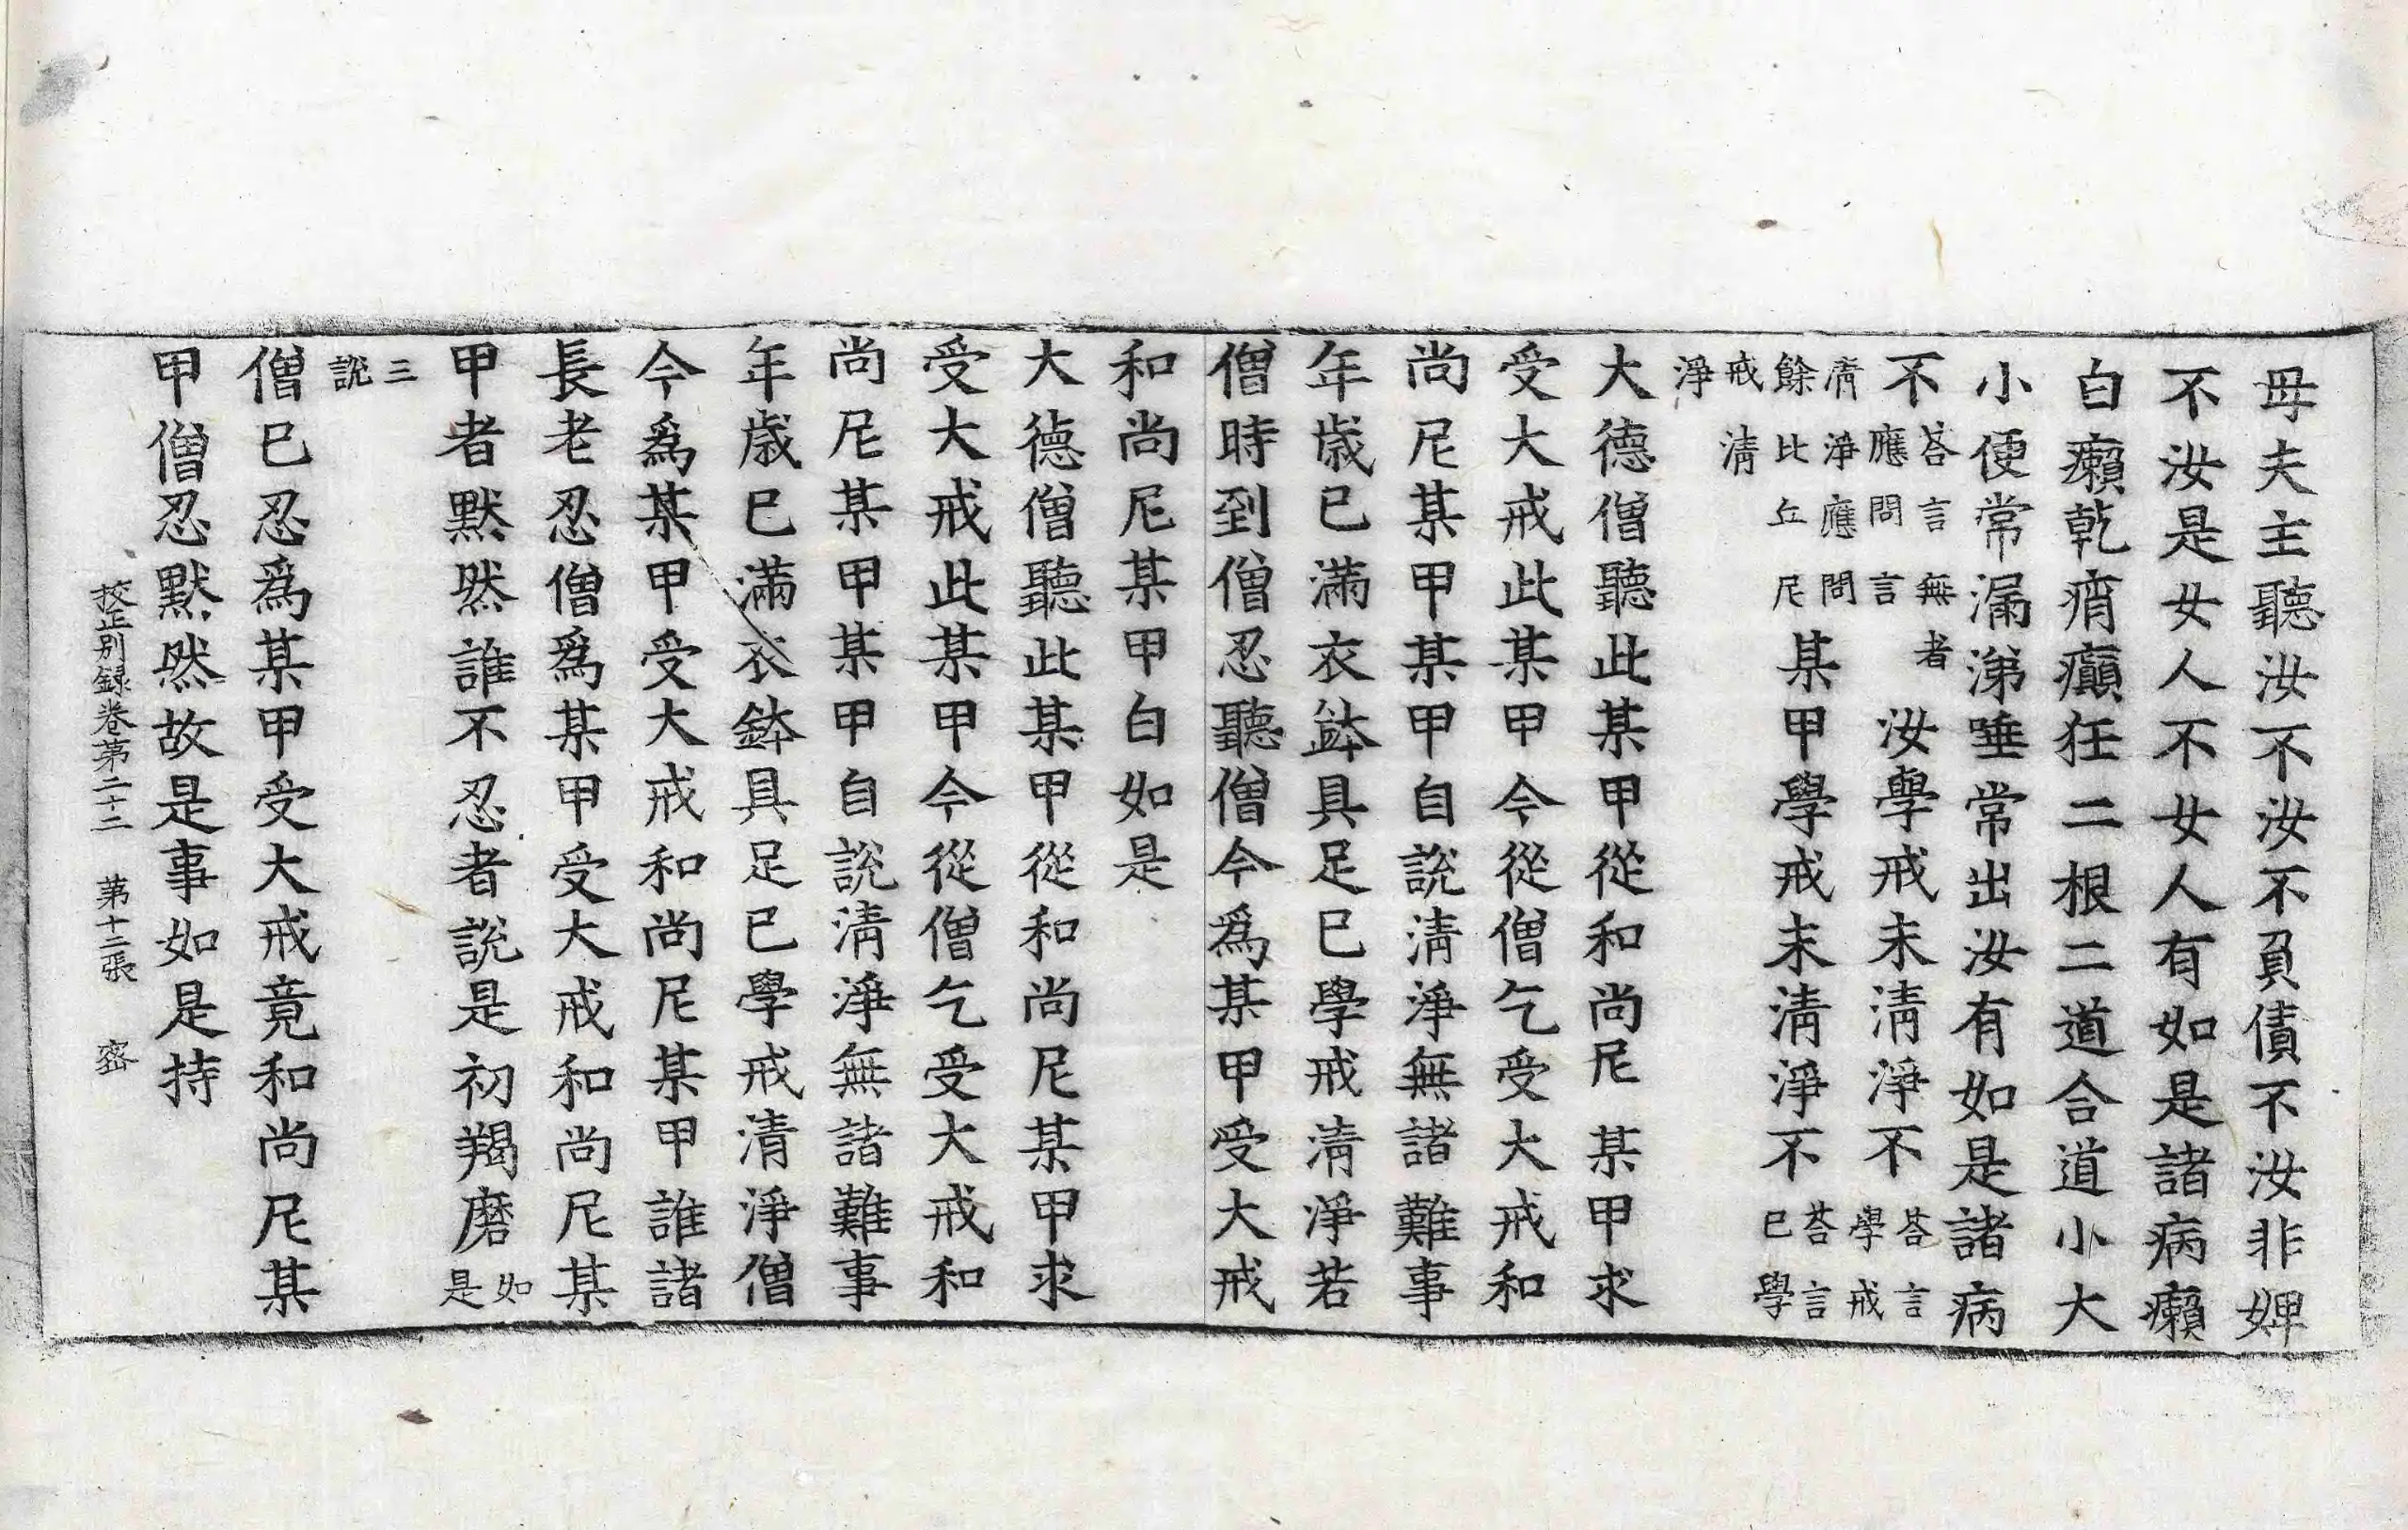 毋夫主聽汝不汝不負債不汝非婢
不汝是女人不女人有如是諸病癩
白癩乾痟癲狂二根二道合道小大
小便常漏涕唾常出汝有如是諸病
不荅言無者應問言汝學戒未清淨不荅言學戒
清淨應問餘比丘尼某甲學戒未清淨不荅言已學
戒清淨
大德僧聽此某甲從和尚尼某甲求
受大戒此某甲今從僧乞受大戒和
尚尼某甲某甲自說清淨無諸難事
年歲已滿衣鉢具足已學戒清淨若
僧時到僧忍聽僧今爲某甲受大戒
和尚尼某甲白如是
大德僧聽此某甲從和尚尼某甲求
受大戒此某甲今從僧乞受大戒和
尚尼某甲某甲自說清淨無諸難事
年歲已滿衣鉢具足已學戒清淨僧
今爲某甲受大戒和尚尼某甲誰諸
長老忍僧爲某甲受大戒和尚尼某
甲者默然誰不忍者說是初羯磨如是
三說
僧已忍爲某甲受大戒竟和尚尼某
甲僧忍默然故是事如是持
校正別録卷第二十二 第十二張 密